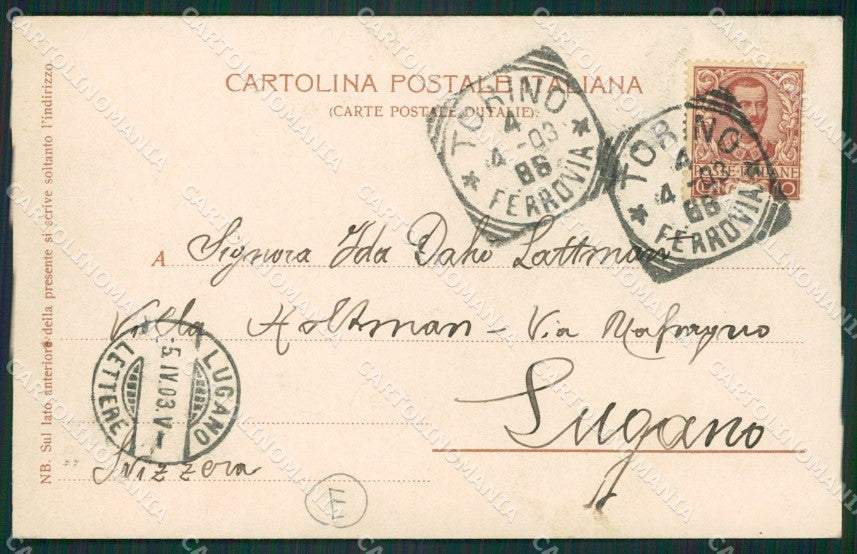 CARTOLINA POSTALE ITALIANA
(CARTE POSTALE D'ITALIE).
TORINO
4
4-03
86
FERROVIA
TORINO
4
4-03
86
FERROVIA
POSTE ITALIANE
A Signora Ida Daho Lattman
Villa Holtman - Via
Lugano
Svizzera
LUGANO
-5.IV.03.V-
LETTERE
NB. Sul lato anteriore della presente si scrive soltanto l'indirizzo.
CARTOLINOMANIA